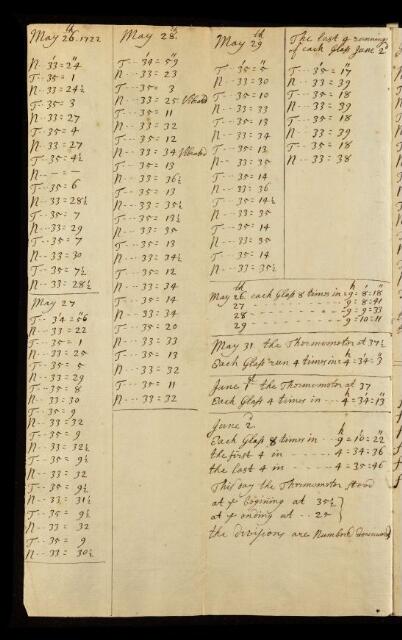 May 26th. 1722
N - 33 = 24
T - 35 = 1
N - 33 = 24½
T - 35 = 3
N - 33 = 27
T - 35 = 4
N - 33 = 27
T - 35 = 4½
N - - - = -
T - 35 = 6
N - 33 = 28½
T - 35 = 7
N - 33 = 29
T - 35 = 7
N - 33 = 30
T - 35 = 7½
N - 33 = 28½
May 27
T - 34 = 56
N - 33 = 22
T - 35 = 1
N - 33 = 25
T - 35 = 5
N - 33 = 29
T - 35 = 8
N - 33 = 30
T - 35 = 9
N - 33 = 32
T - 35 = 9
N - 33 = 32½
T - 35 = 9½
N - 33 = 32
T - 35 = 9½
N - 33 = 31½
T - 35 = 9½
N - 33 = 32
T - 35 = 9
N - 33 = 30½
May 28
T - 34 = 59
N - 33 = 23
T - 35 = 3
N - 33 = 25
T - 35 = 11
N - 33 = 32
T - 35 = 12
N - 33 = 34
T - 35 = 13
N - 33 = 36½
T - 35 = 13
N - 33 = 35½
T - 35 = 13½
N - 33 = 35
T - 35 = 13
N - 33 = 34½
T - 35 = 12
N - 33 = 34
T - 35 = 14
N - 33 = 34
T - 35 = 20
N - 33 = 33
T - 35 = 13
N - 33 = 32
T - 35 = 11
N - 33 = 32
May 29
T - 35 = 5
N - 33 = 30
T - 35 = 10
N - 33 = 33
T - 35 = 13
N - 33 = 34
T - 35 = 13
N - 33 = 35
T - 35 = 14
N - 33 = 36
T - 35 = 14½
N - 33 = 35
T - 35 = 14
N - 33 = 35
T - 35 = 14
N - 33 = 35½
The last 4 runnings
of each Glass June 2d
T - 35 = 17
N - 33 = 39
T - 35 = 18
N - 33 = 39
T - 35 = 18
N - 33 = 39
T - 35 = 18
N - 33 = 38
May 26th each Glass 8 times in = 9 = 8 = 18
27 - 9 = 8 = 41
28 - 9 = 9 = 33
29 - 9 = 10 = 11
May 31 the Thermometor at 37½
Each Glass run 4 times in - 4 = 34 = 3
June 1st the Thermometor at 37
Each Glass 4 times in - 4 = 34 = 13
June 2d
Each Glass 8 times in - 9 = 10 = 22
the first 4 in - 4 = 34 = 36
the last 4 in - 4 = 35 = 46
This day the Thermometor stood
at ye begining at 35½
at ye ending at - 25
the divisions are Numbred downward